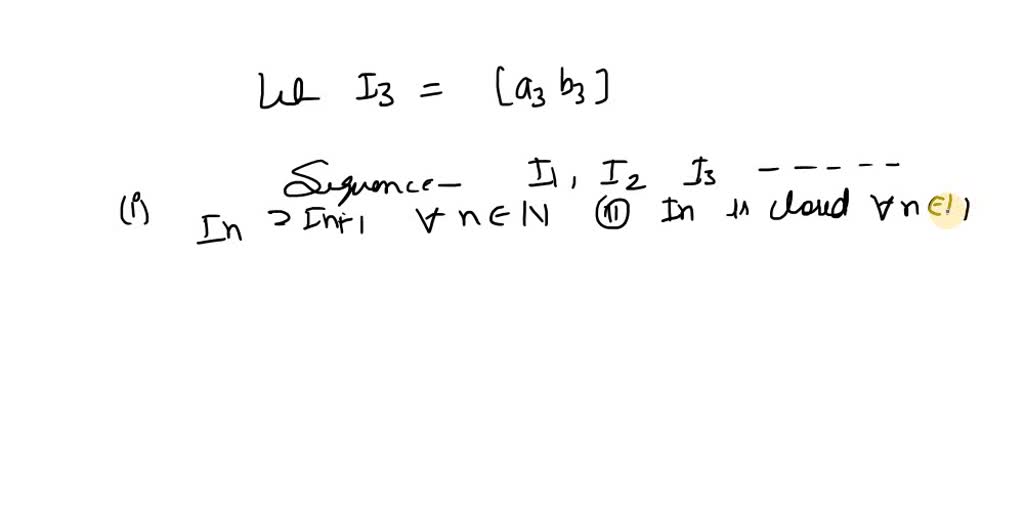 Let I3 = [a3 b3]
Sequence - I1, I2 I3 -----
(i) In ⊃ In+1 ∀ n ∈ N (ii) In is closed ∀ n ∈